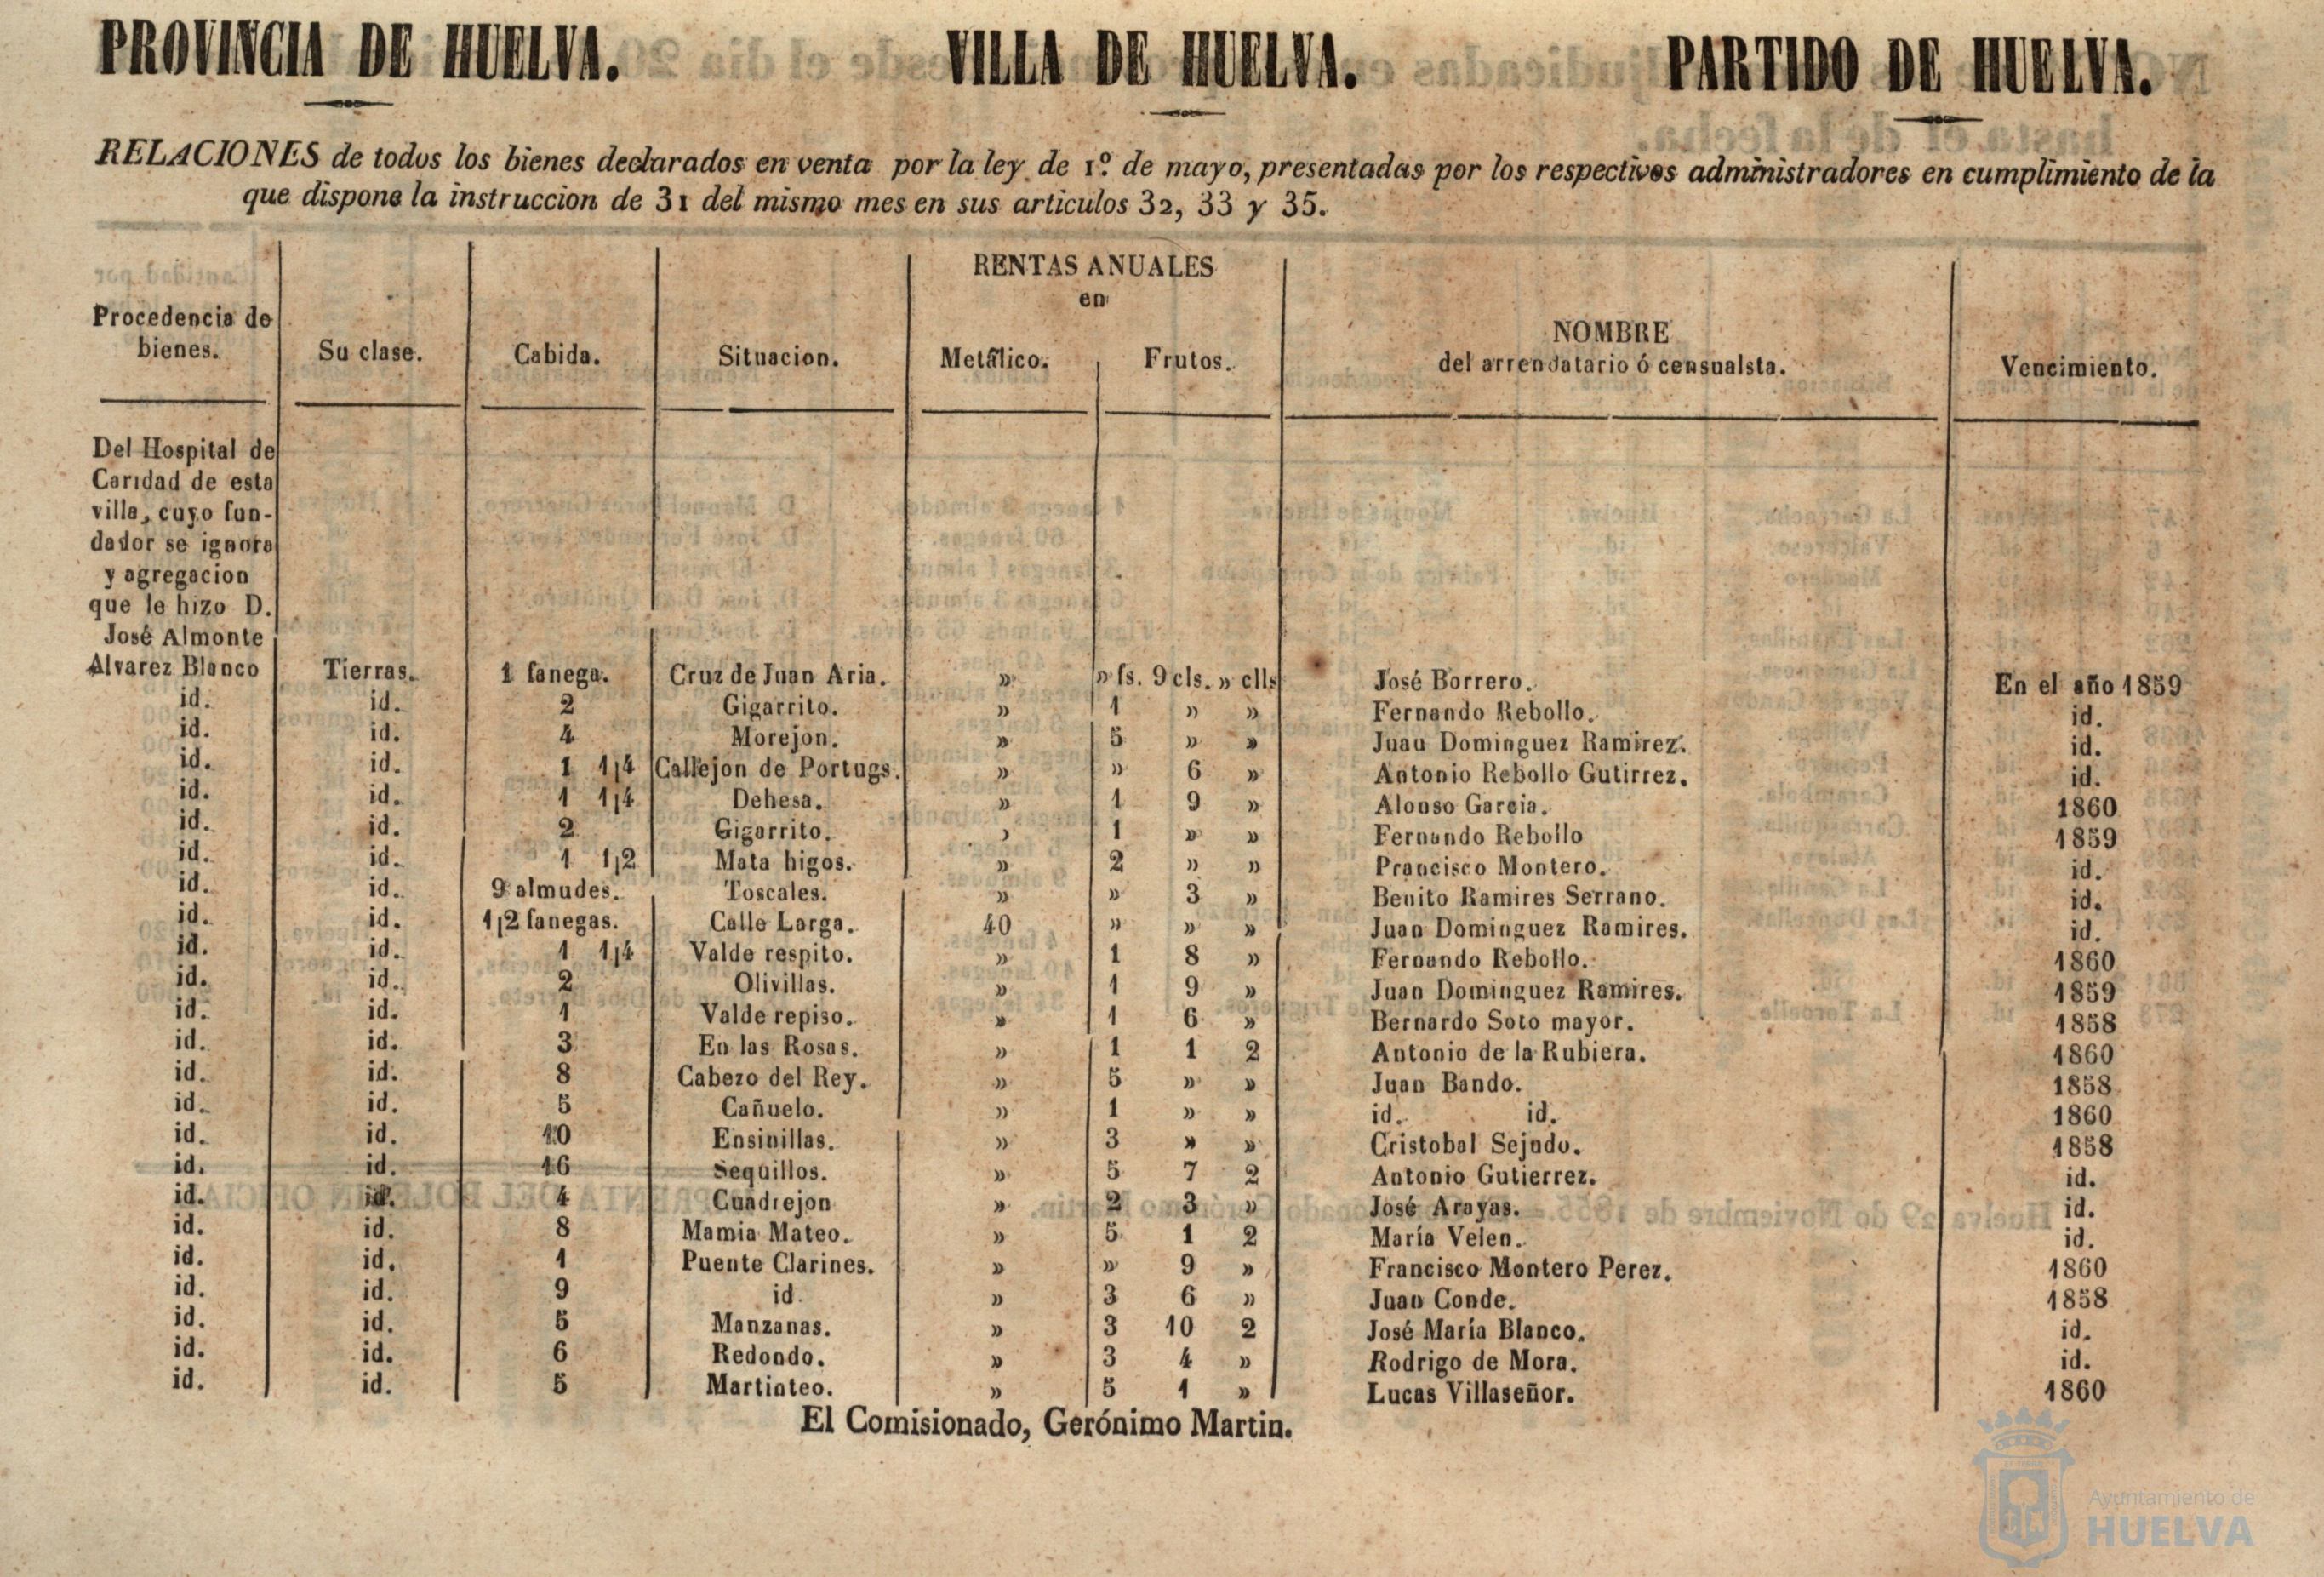 PROVINCIA DE HUELVA. VILLA DE HUELVA. PARTIDO DE HUELVA.
RELACIONES de todos los bienes declarados en venta por la ley de 1º de mayo, presentadas por los respectivos administradores en cumplimiento de la
que dispone la instruccion de 31 del mismo mes en sus articulos 32, 33 y 35.
RENTAS ANUALES
en
Procedencia de bienes. Su clase. Cabida. Situacion. Metálico. Frutos. NOMBRE del arrendatario ó censualsta. Vencimiento.
Del Hospital de
Caridad de esta
villa, cuyo fun-
dador se ignora
y agregacion
que le hizo D.
José Almonte
Alvarez Blanco Tierras. 1 fanega. Cruz de Juan Aria. » » fs. 9 cls. » clls José Borrero. En el año 1859
id. id. 2 Gigarrito. » 1 » » Fernando Rebollo. id.
id. id. 4 Morejon. » 5 » » Juau Dominguez Ramirez. id.
id. id. 1 1¡4 Callejon de Portugs. » » 6 » Antonio Rebollo Gutirrez. id.
id. id. 1 1¡4 Dehesa. » 1 9 » Alonso Garcia. 1860
id. id. 2 Gigarrito. › 1 » » Fernando Rebollo 1859
id. id. 1 1¡2 Mata higos. » 2 » » Prancisco Montero. id.
id. id. 9 almudes. Toscales. » » 3 » Benito Ramires Serrano. id.
id. id. 1¡2 fanegas. Calle Larga. 40 » » » Juan Dominguez Ramires. id.
id. id. 1 1¡4 Valde respito. » 1 8 » Fernando Rebollo. 1860
id. id. 2 Olivillas. » 1 9 » Juan Dominguez Ramires. 1859
id. id. 1 Valde repiso. » 1 6 » Bernardo Soto mayor. 1858
id. id. 3 En las Rosas. » 1 1 2 Antonio de la Rubiera. 1860
id. id. 8 Cabezo del Rey. » 5 » » Juan Bando. 1858
id. id. 5 Cañuelo. » 1 » » id. id. 1860
id. id. 10 Ensinillas. » 3 » » Cristobal Sejudo. 1858
id. id. 16 Sequillos. » 5 7 2 Antonio Gutierrez. id.
id. id. 4 Cuadrejon » 2 3 » José Arayas. id.
id. id. 8 Mamia Mateo. » 5 1 2 María Velen. id.
id. id. 1 Puente Clarines. » » 9 » Francisco Montero Perez. 1860
id. id. 9 id. » 3 6 » Juan Conde. 1858
id. id. 5 Manzanas. » 3 10 2 José María Blanco. id.
id. id. 6 Redondo. » 3 4 » Rodrigo de Mora. id.
id. id. 5 Martinteo. » 5 1 » Lucas Villaseñor. 1860
El Comisionado, Gerónimo Martin.
Ayuntamiento de
HUELVA